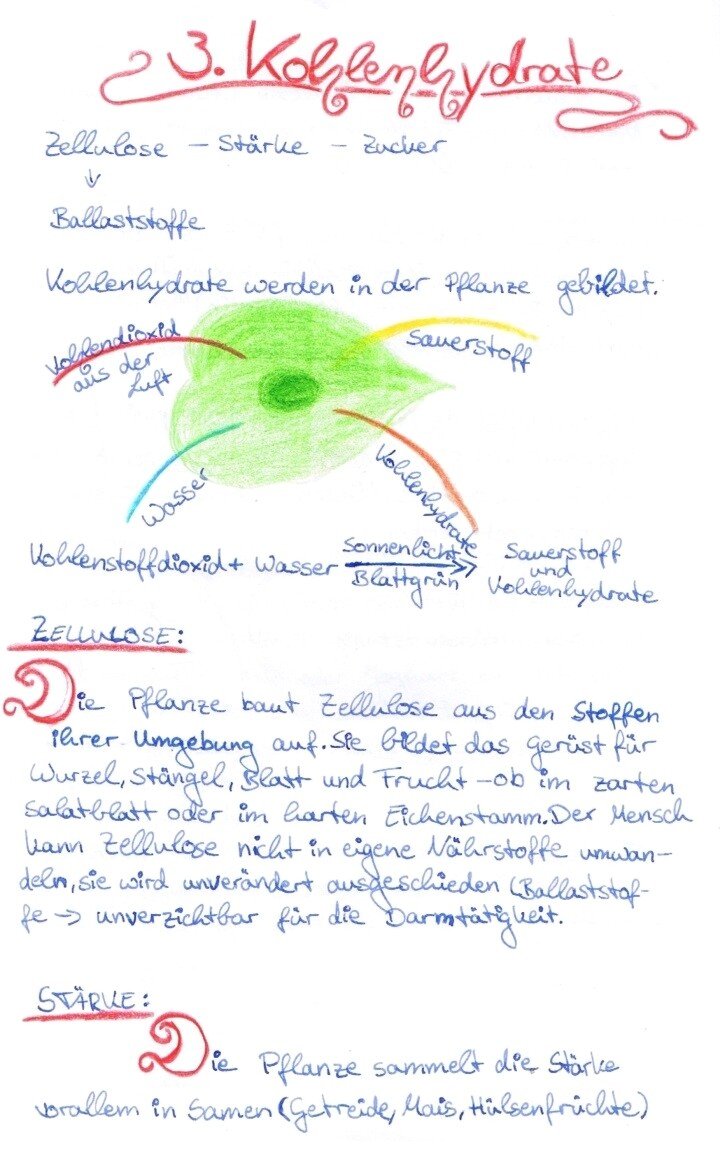 3. Kohlenhydrate
Zellulose – Stärke – Zucker
↓
Ballaststoffe
Kohlenhydrate werden in der Pflanze gebildet.
Kohlendioxid
aus der
Luft
Sauerstoff
Wasser
Kohlenhydrate
Kohlenstoffdioxid + Wasser
Sonnenlicht
Blattgrün
Sauerstoff
und
Kohlenhydrate
ZELLULOSE:
Die Pflanze baut Zellulose aus den Stoffen
ihrer Umgebung auf. Sie bildet das Gerüst für
Wurzel, Stängel, Blatt und Frucht – ob im zarten
Salatblatt oder im harten Eichenstamm. Der Mensch
kann Zellulose nicht in eigene Nährstoffe umwan-
deln, sie wird unverändert ausgeschieden (Ballaststof-
fe -> unverzichtbar für die Darmtätigkeit.
STÄRKE:
Die Pflanze sammelt die Stärke
vorallem in Samen (Getreide, Mais, Hülsenfrüchte)